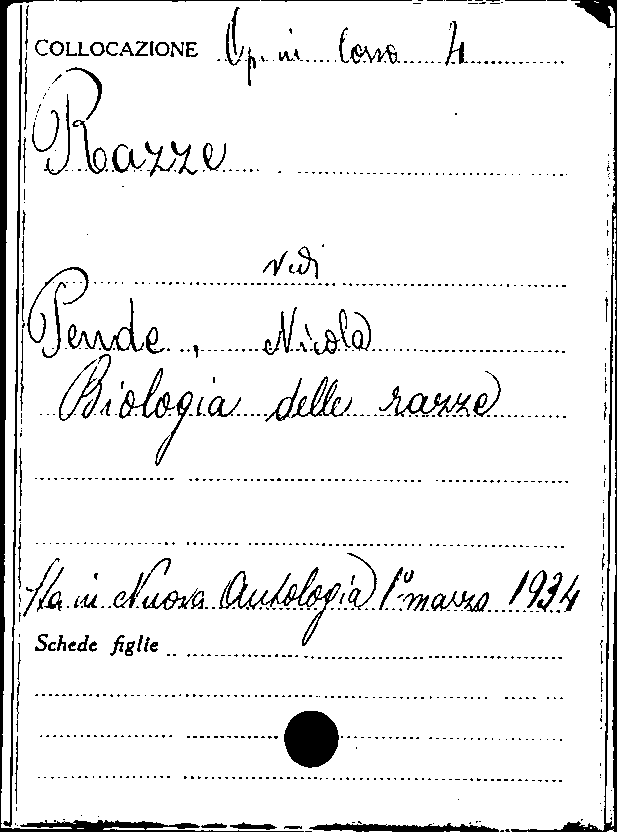 COLLOCAZIONE Op. in Corso 4
Razze
vedi
Pende, Nicola
Biologia delle razze
Sta in Nuova Antologia 1º marzo 1934
Schede figlie